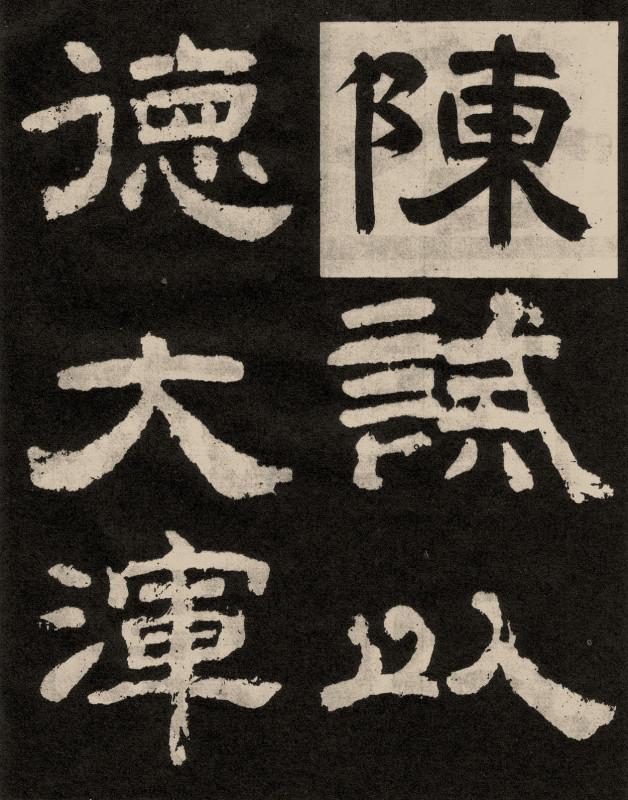 陳誡以
德大渾